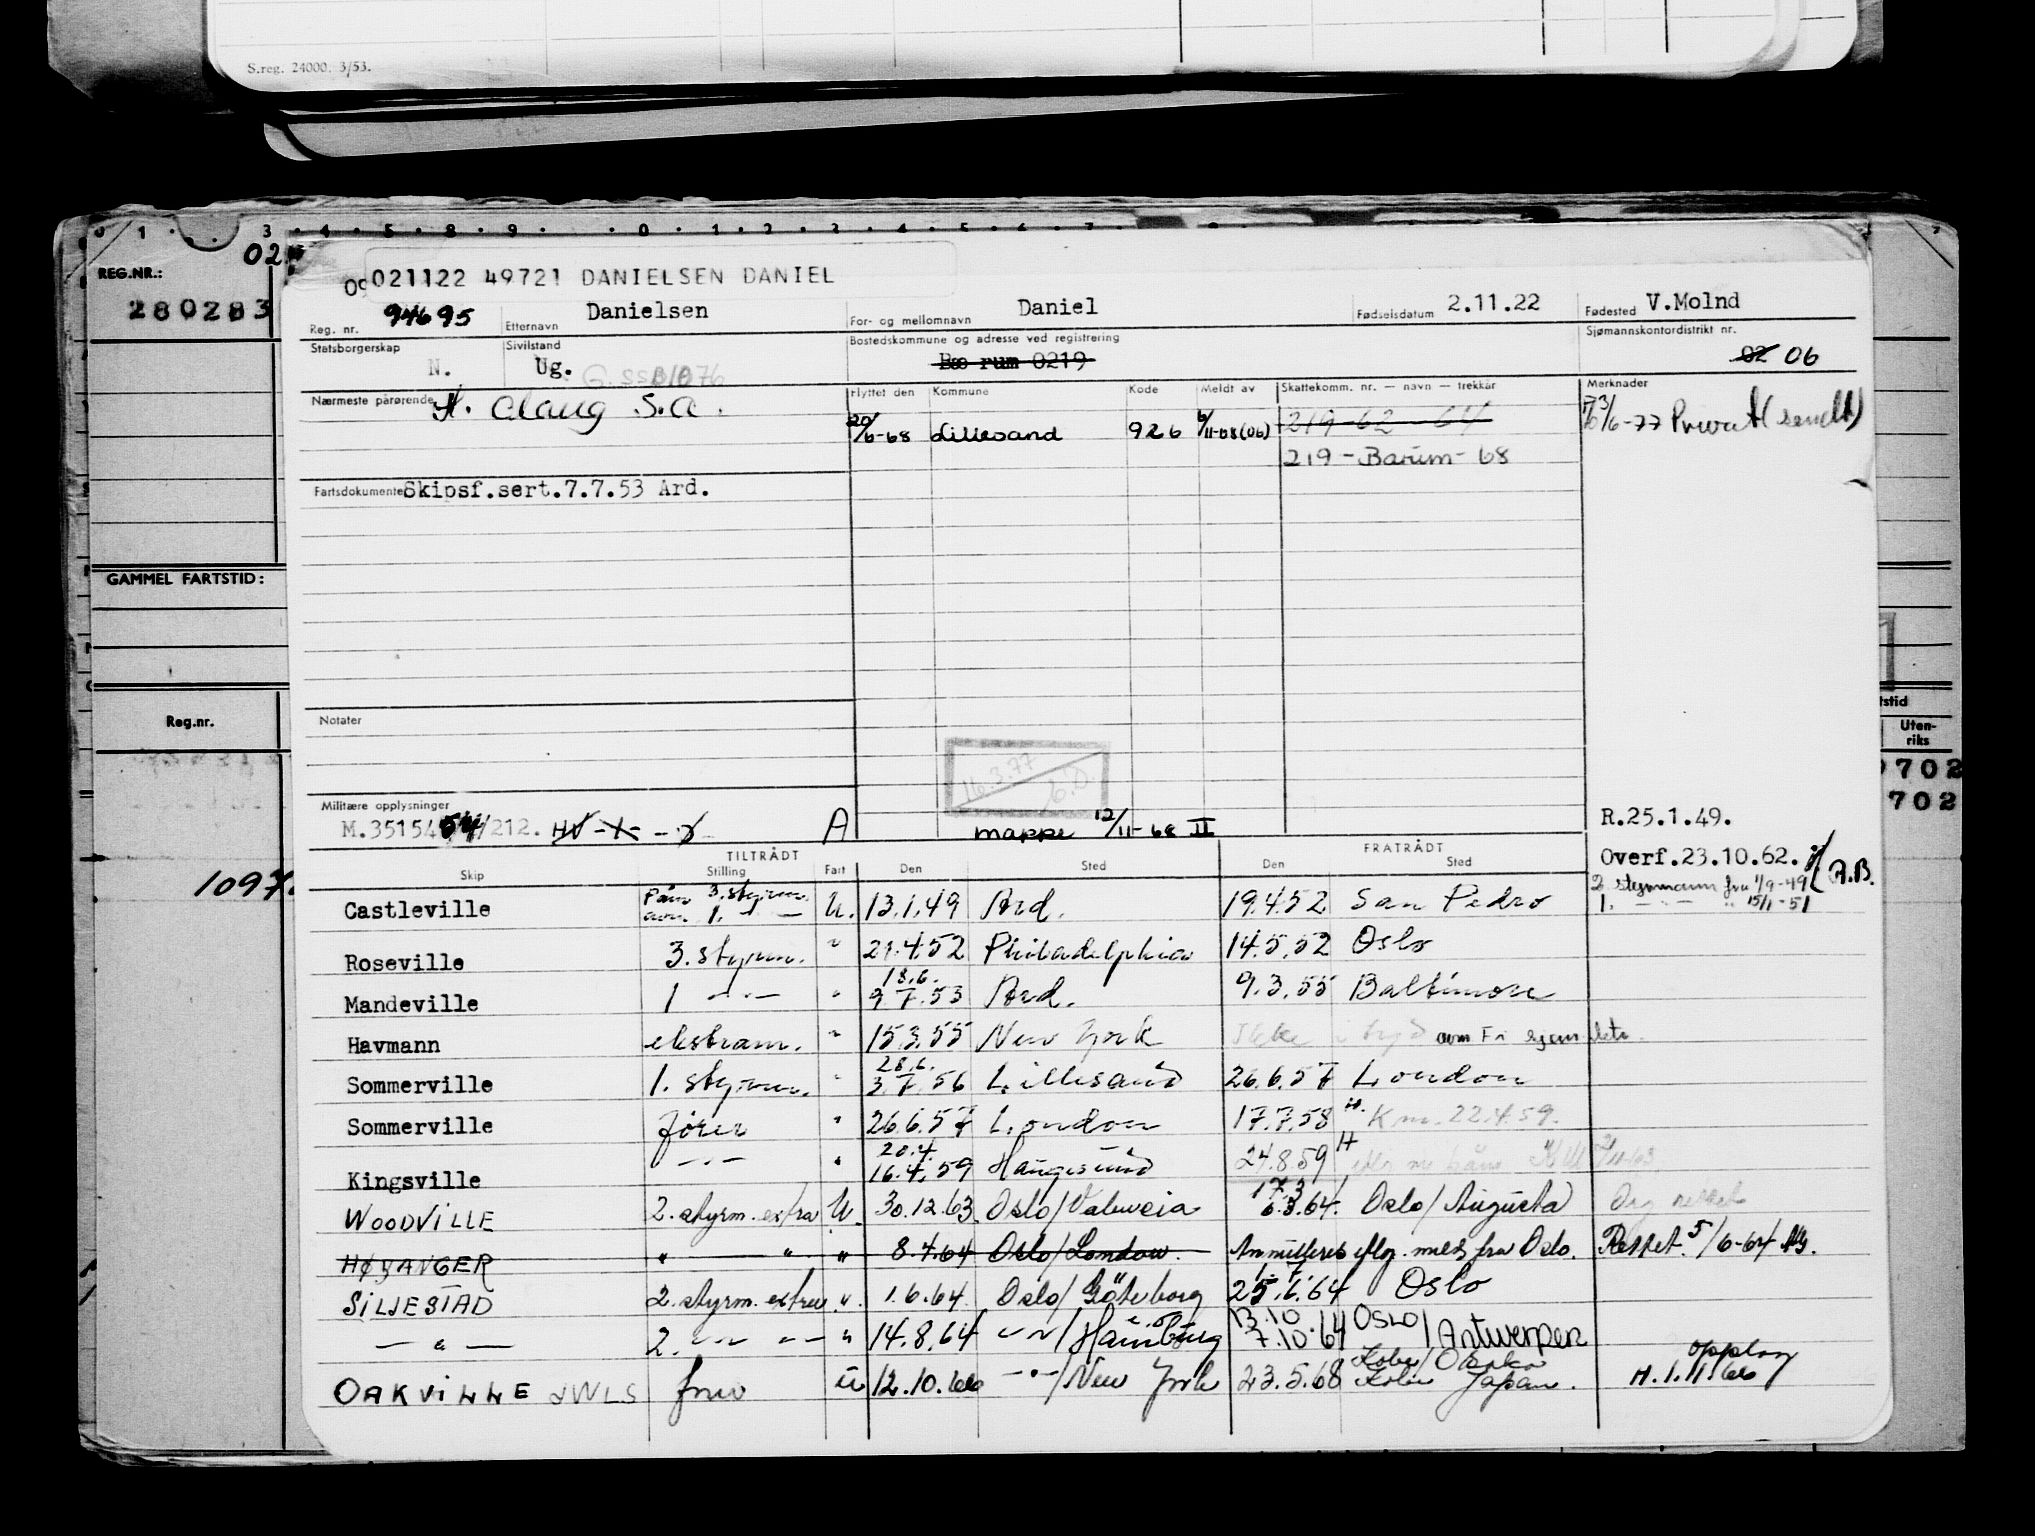 S.reg. 24000. 3/53.
REG.NR.:
280283
GAMMEL FARTSTID:
Reg.nr.
1097
021122 49721 DANIELSEN DANIEL
Reg. nr. 94695 Etternavn Danielsen For- og mellomnavn Daniel Fødselsdatum 2.11.22 Fødested V.Molnd
Statsborgerskap N. Sivilstand Ug. Bostedskommune og adresse ved registrering Bærum 0219 Sjømannskontordistrikt nr. 02 06
G. SSB/076
Nærmeste pårørende Flyttet den Kommune Kode Meldt av Skattekomm. nr. — navn — trekkår Merknader
20/6-68 Lillesand 926 6/11-68(06) 219-62 64
219-Bærum-68
Fartsdokumenter Skipsf.sert.7.7.53 Ard.
Notater
16.3.77
Militære opplysninger
212. A mappe 12/11-68 II
R.25.1.49.
Overf.23.10.62. R.B.
2 styrmann fra 1/9-49
1. — " — " 15/1-51
TILTRÅDT FRATRÅDT
Skip Stilling Fart Den Sted Den Sted
Castleville 3. styrm. 1. U. 13.1.49 Ard. 19.4.52 San Pedro
Roseville 3. styrm. " 21.4.52 Philadelphia 14.5.52 Oslo
Mandeville 1 —"— " 18.6. 9.7.53 Ard. 9.3.55 Baltimore
Havmann ekstram. " 15.3.55 New York Ikke
Sommerville 1. styrm. " 28.6. 3.7.56 Lillesand 26.6.57 London
Sommerville fører " 26.6.57 London 17.7.58 H. 22.4.59.
Kingsville —"— " 20.4. 16.4.59 Haugesund 24.8.59 H
WOODVILLE 2. styrm. extra U. 30.12.63. Oslo/Valencia 17.3 6.3.64. Oslo/Augusta
HØYANGER " — " " 8.4.64 Oslo/London. Annulleres iflg. meld fra Oslo. Rettet 5/6-64
SILJESTAD 2. styrm. extra " 1.6.64 Oslo/Göteborg 1.7 25.6.64 Oslo
— " — 2. —"— —"— " 14.8.64 —"—/Hamburg 13.10 7.10.64 OSLO/Antwerpen
OAKVILLE JWLS U 12.10.66 —"—/New York 23.5.68 Kobe/Osaka Kobe Japan.
opplag
H. 1.11.66
Uten-
riks
702
702